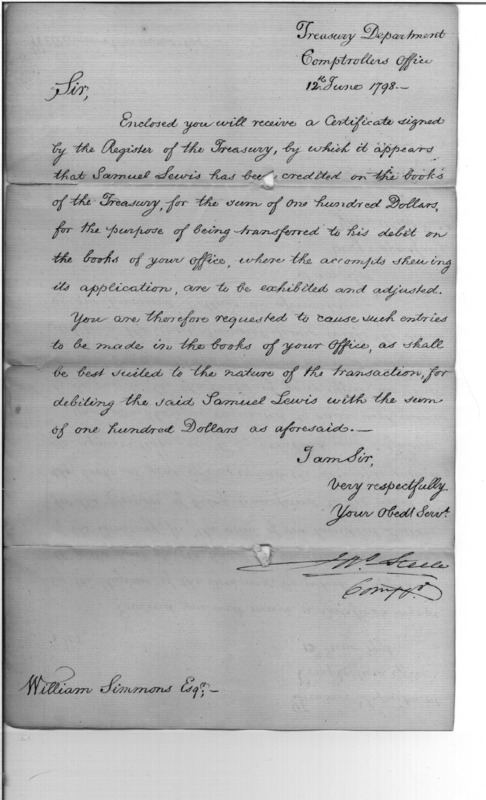 Treasury Department
Comptrollers Office
12th June 1798.—
Sir,
Enclosed you will receive a Certificate signed
by the Register of the Treasury, by which it appears
that Samuel Lewis has been credited on the books
of the Treasury, for the sum of one hundred Dollars,
for the purpose of being transferred to his debit on
the books of your office, where the accompts shewing
its application, are to be exhibited and adjusted.
You are therefore requested to cause such entries
to be made in the books of your Office, as shall
be best suited to the nature of the transaction, for
debiting the said Samuel Lewis with the sum
of one hundred Dollars as aforesaid.—
I am Sir,
very respectfully
Your Obedt Servt.
Jno. Steele
Compr.
William Simmons Esqr.—